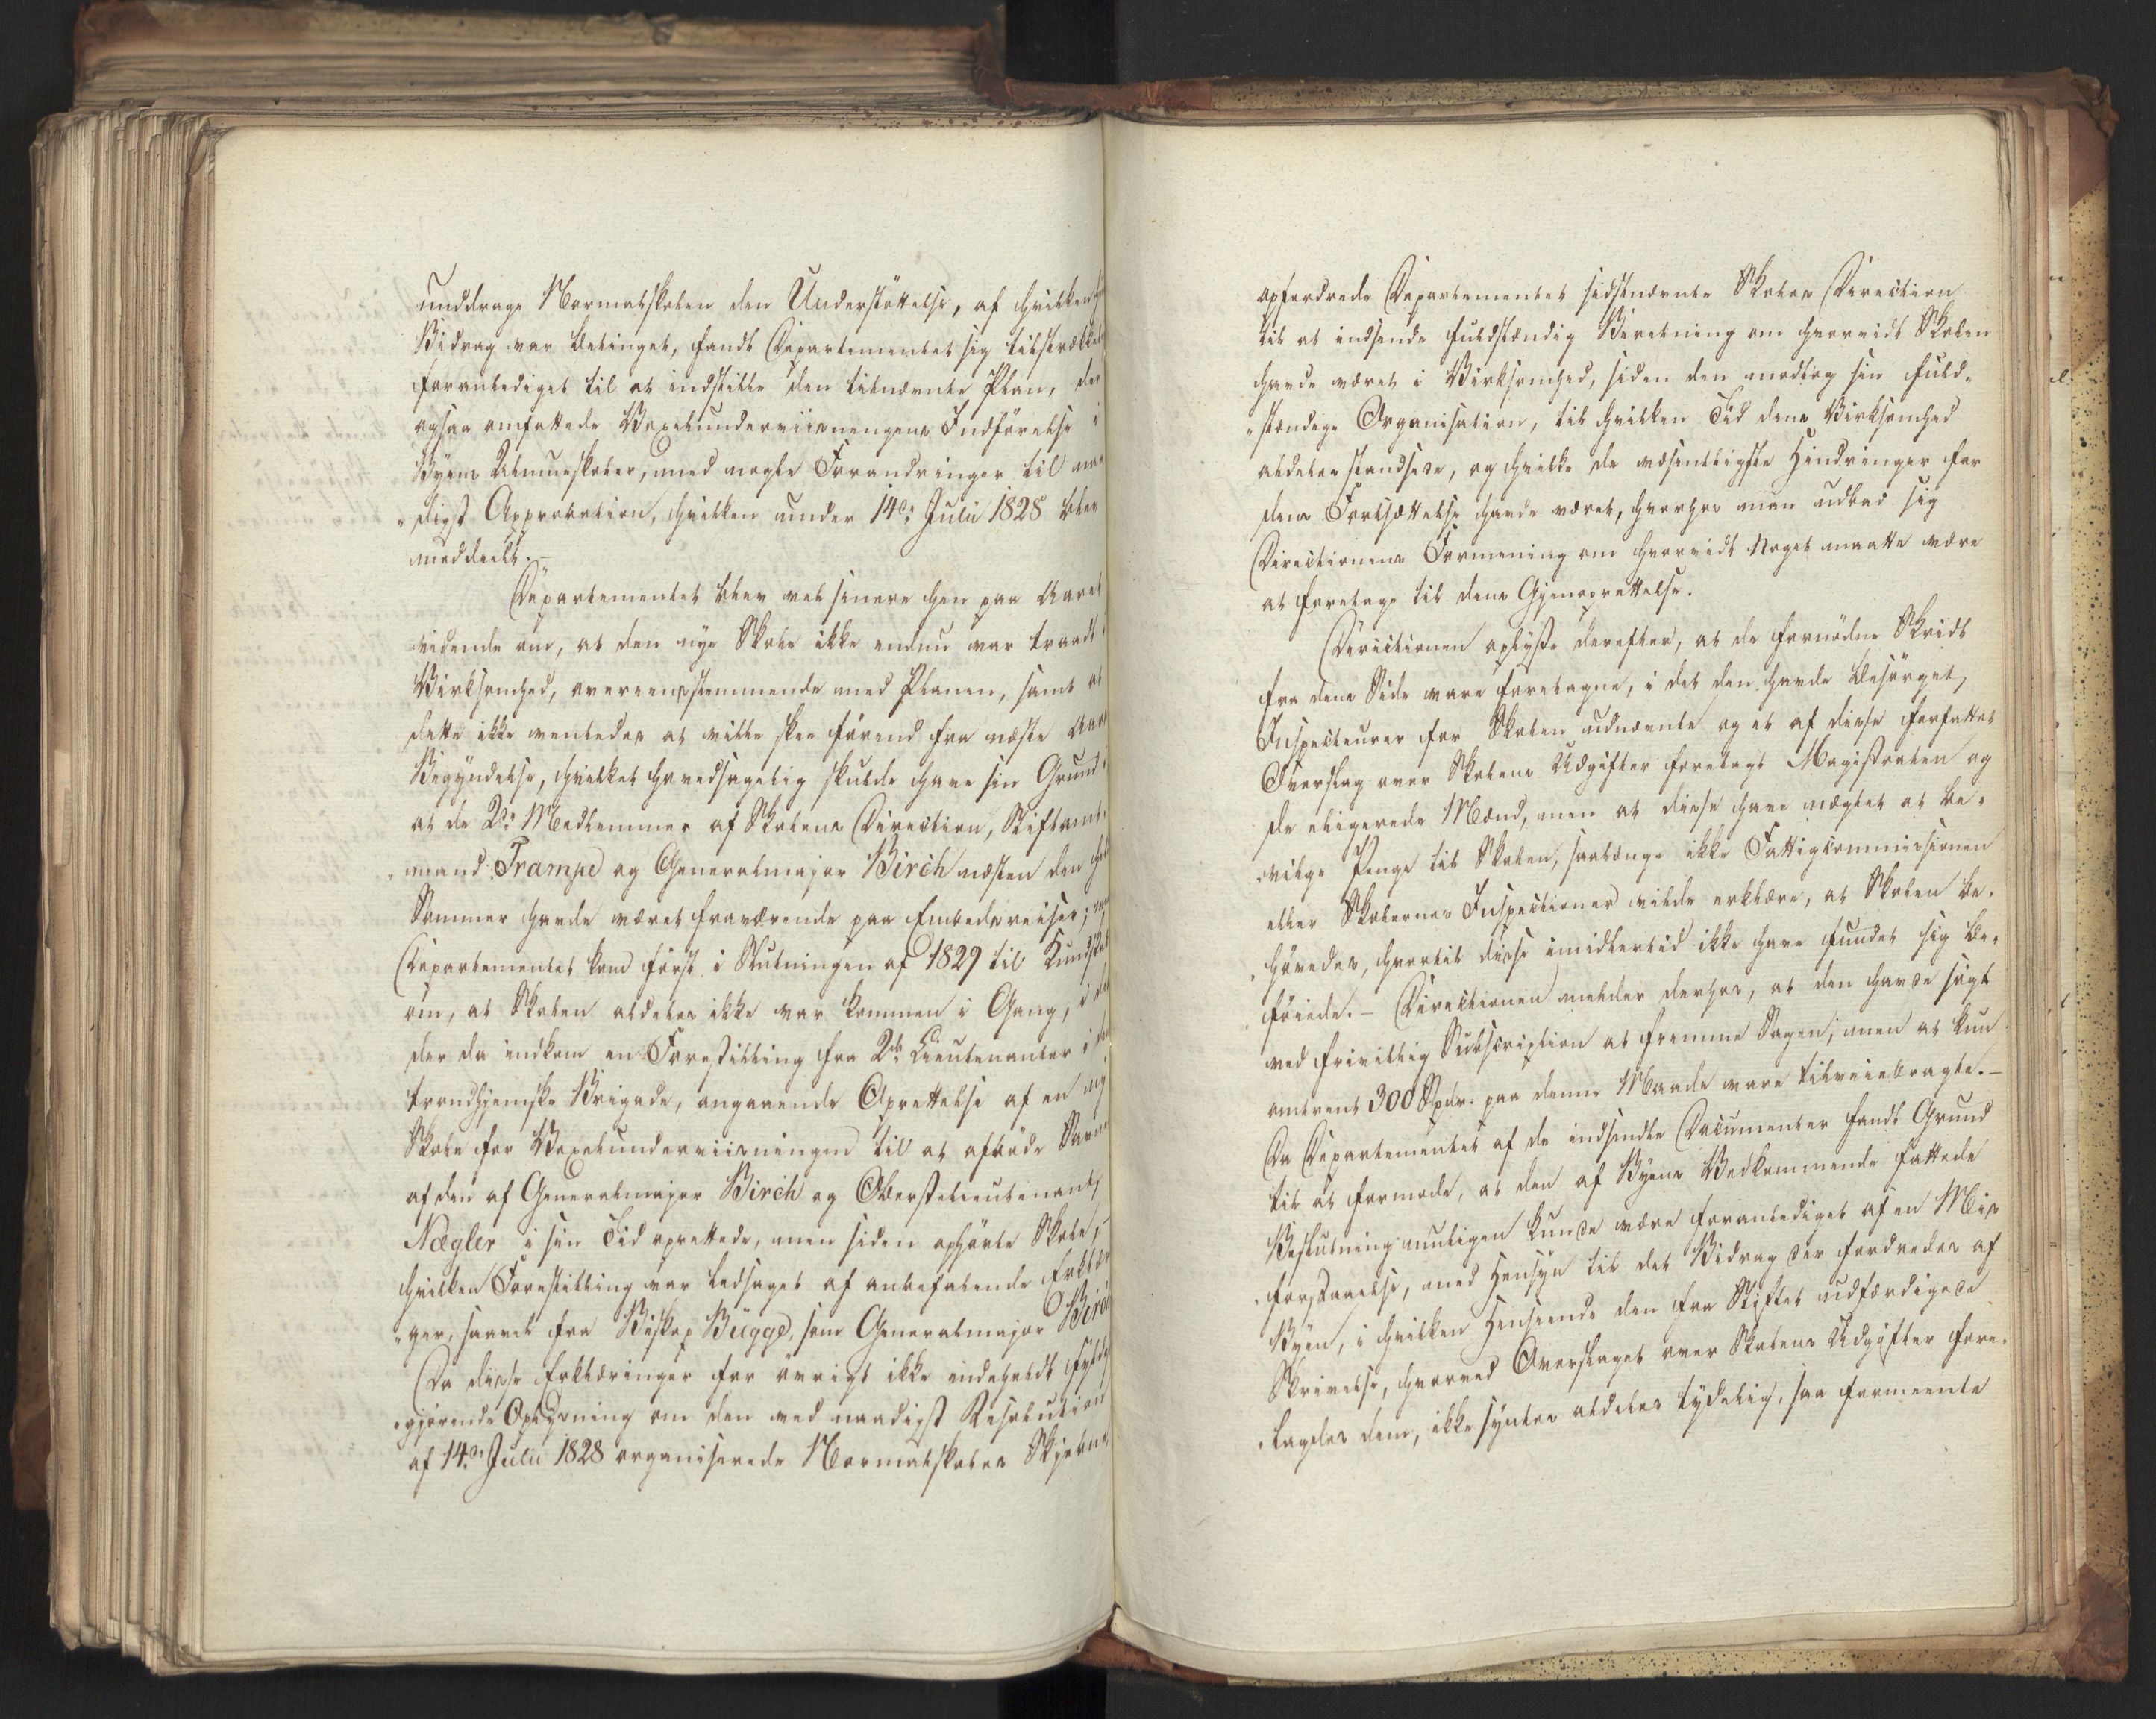 unddrage Normalskolen den Understöttelse, af hvilken
Bidrag var betinget, fandt Departementet sig tilstrækkel
foranlediget til at indstille den tilnævnte Plan, der
ogsaa omfattede Vexelunderviisningens Indførelse i
Byens Almueskoler, med nogle Forandringer til naa-
"digst Approbation, hvilken under 14de Julii 1828 blev
meddeelt.-
Departementet blev vel senere hen paa Aaret
vidende om, at den nye Skole ikke endnu var traadt i
Virksomhed, overeensstemmende med Planen, samt at
dette ikke ventedes at ville skee förend fra næste Aars
Begyndelse, hvilket hovedsagelig skulde have sin Grund i
at de 2de Medlemmer af Skolens Direction, Stiftamt-
"mand Trampe og Generalmajor Birch næsten den hele
Sommer havde været fraværende paa Embedsreiser; men
Departementet kom först i Slutningen af 1829 til Kundskab
om, at Skolen aldeles ikke var kommen i Gang, i det
der da indkom en Forestilling fra 2de Lieutenanter i den
trondhjemske Brigade, angaaende Oprettelse af en ny
Skole for Vexelunderviisningen til at afbøde Savnet
af den af Generalmajor Birch og Oberstlieutenant
Nægler i sin Tid oprettede, men siden ophørte Skole,
hvilken Forestilling var ledsaget af anbefalende Erklæ-
"ger, saavel fra Biskop Bugge, som Generalmajor Birch
Da disse Erklæringer for övrigt ikke indeholdt fyldest-
"gjørende Oplysning om den ved naadigst Resolution
af 14de Julii 1828 organiserede Normalskoles Skjebne,
opfordrede Departementet sidstnævnte Skoles Direction
til at indsende fuldstændig Beretning om hvorvidt Skolen
havde været i Virksomhed, siden den modtog sin fuld-
"stændige Organisation, til hvilken Tid dens Virksomhed
aldeles standsede, og hvilke de væsentligste Hindringer for
dens Fortsættelse havde været, hvorhos man udbad sig
Directionens Formening om hvorvidt Noget maatte være
at foretage til dens Gjenoprettelse.
Directionen oplyste derefter, at de fornødne Skridt
fra dens Side vare foretagne, i det den havde besörget,
Inspecteurer for Skolen udnævnte og et af disse forfattet
Overslag over Skolens Udgifter forelagt Magistraten og
de eligerede Mænd, men at disse have nægtet at be-
"vilge Penge til Skolen, saalænge ikke Fattigcommissionen
eller Skolernes Inspectioner vilde erklære, at Skolen be-
"hövedes, hvortil disse imidlertid ikke have fundet sig be-
"föiede. - Directionen melder derhos, at den havde sögt
ved frivillig Subscription at fremme Sagen, men at kun
omtrent 300 Spdr. paa denne Maade vare tilveiebragte. -
Da Departementet af de indsendte Documenter fandt Grund
til at formode, at den af Byens Vedkommende fattede
Beslutning muligen kunde være foranlediget af en Mis-
"forstaaelse, med Hensyn til det Bidrag der fordredes af
Byen, i hvilken Henseende den fra Stiftet udfærdigede
Skrivelse, hvorved Overslaget over Skolens Udgifter fore-
"lagdes dem, ikke syntes aldeles tydelig, saa formeente